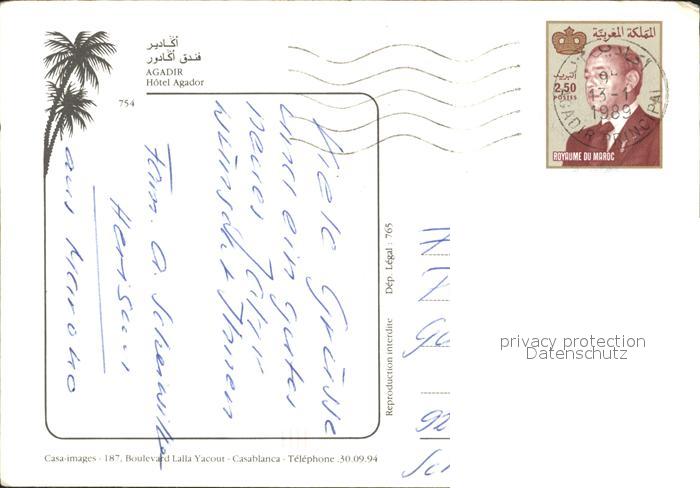 أكادير
فندق أكادور
AGADIR
Hôtel Agador
754
المملكة المغربية
البريد
2,50
POSTES
ROYAUME DU MAROC
9-
13-1
1989
AGADIR PRINCIPAL
Viele Grüsse
und ein gutes
neues Jahr
wünscht Ihnen
Fam. A.
Herisau
aus Maroko
Dép. Légal : 765
Reproduction interdite
92
privacy protection
Datenschutz
Casa-images - 187, Boulevard Lalla Yacout - Casablanca - Téléphone .30.09.94